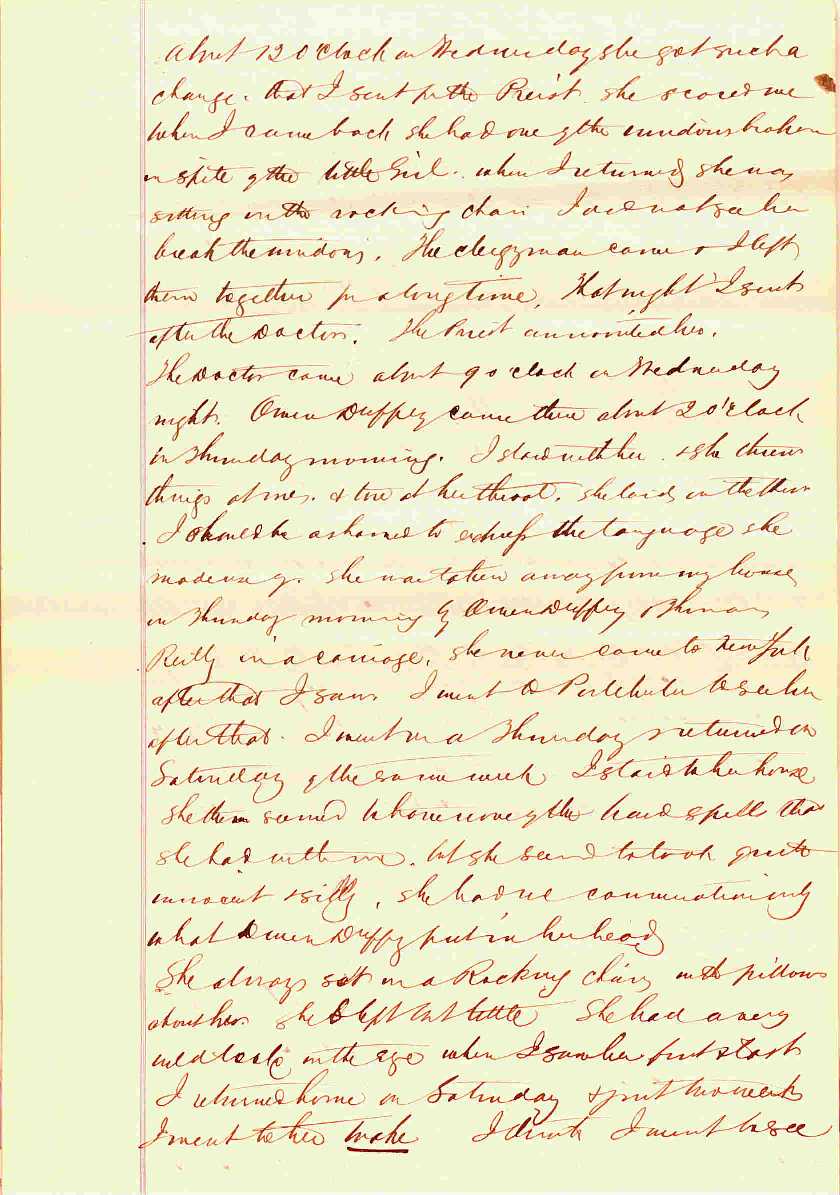 About 12 O'Clock on Wednesday she got such a
change. that I sent for the Preist. she scared me
when I came back she had one of the windows broken
in spite of the little Girl. when I returned she was
sitting in the rocking chair I did not see her
break the windows. The clergyman came & I left
them together for a long time, That night I sent
after the Doctor. The Priest annointed her.
The Doctor came about 9 o'clock on Wednesday
night. Owen Duffey came there about 2 o'clock
in Thursday morning. I staid with her. & she threw
things at me. & tore at her throat. she laid on the floor
I should be ashamed to express the language she
made use of. she was taken away from my house
on Thursday morning by Owen Duffey & Thomas
Reilly in a carriage, she never came to New York
after that I saw. I went to Portchester to see her
after that. I went on a Thursday & returned on
Saturday of the same week I staid to her house
She then seemed to have none of the hard spells that
she had with me. but she seemed to look quite
innocent & silly, she had no conversation only
what Owen Duffy put in her head
She always sat in a Rocking chair with pillows
about her. she slept but little She had a very
wild look in the eye when I saw her first & last
I returned home on Saturday & just two weeks
I went to her wake I think I went to see